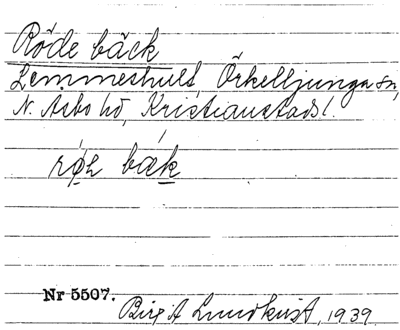 Röde bäck
Lemmeshult, Örkelljunga sn,
N. Åsbo hd, Kristianstads l.
bäk
Nr 5507.
Birgit Lundkvist, 1939.